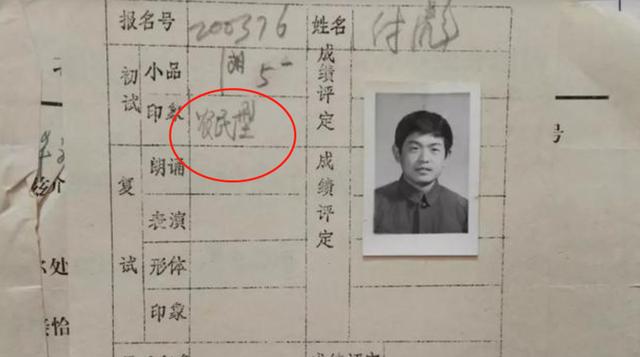 报名号 200376 姓名 付彪
初试 小品 5- 成绩评定
印象 农民型
复试 朗诵 成绩评定
表演
形体
印象
号
介
处
恰
成绩评定